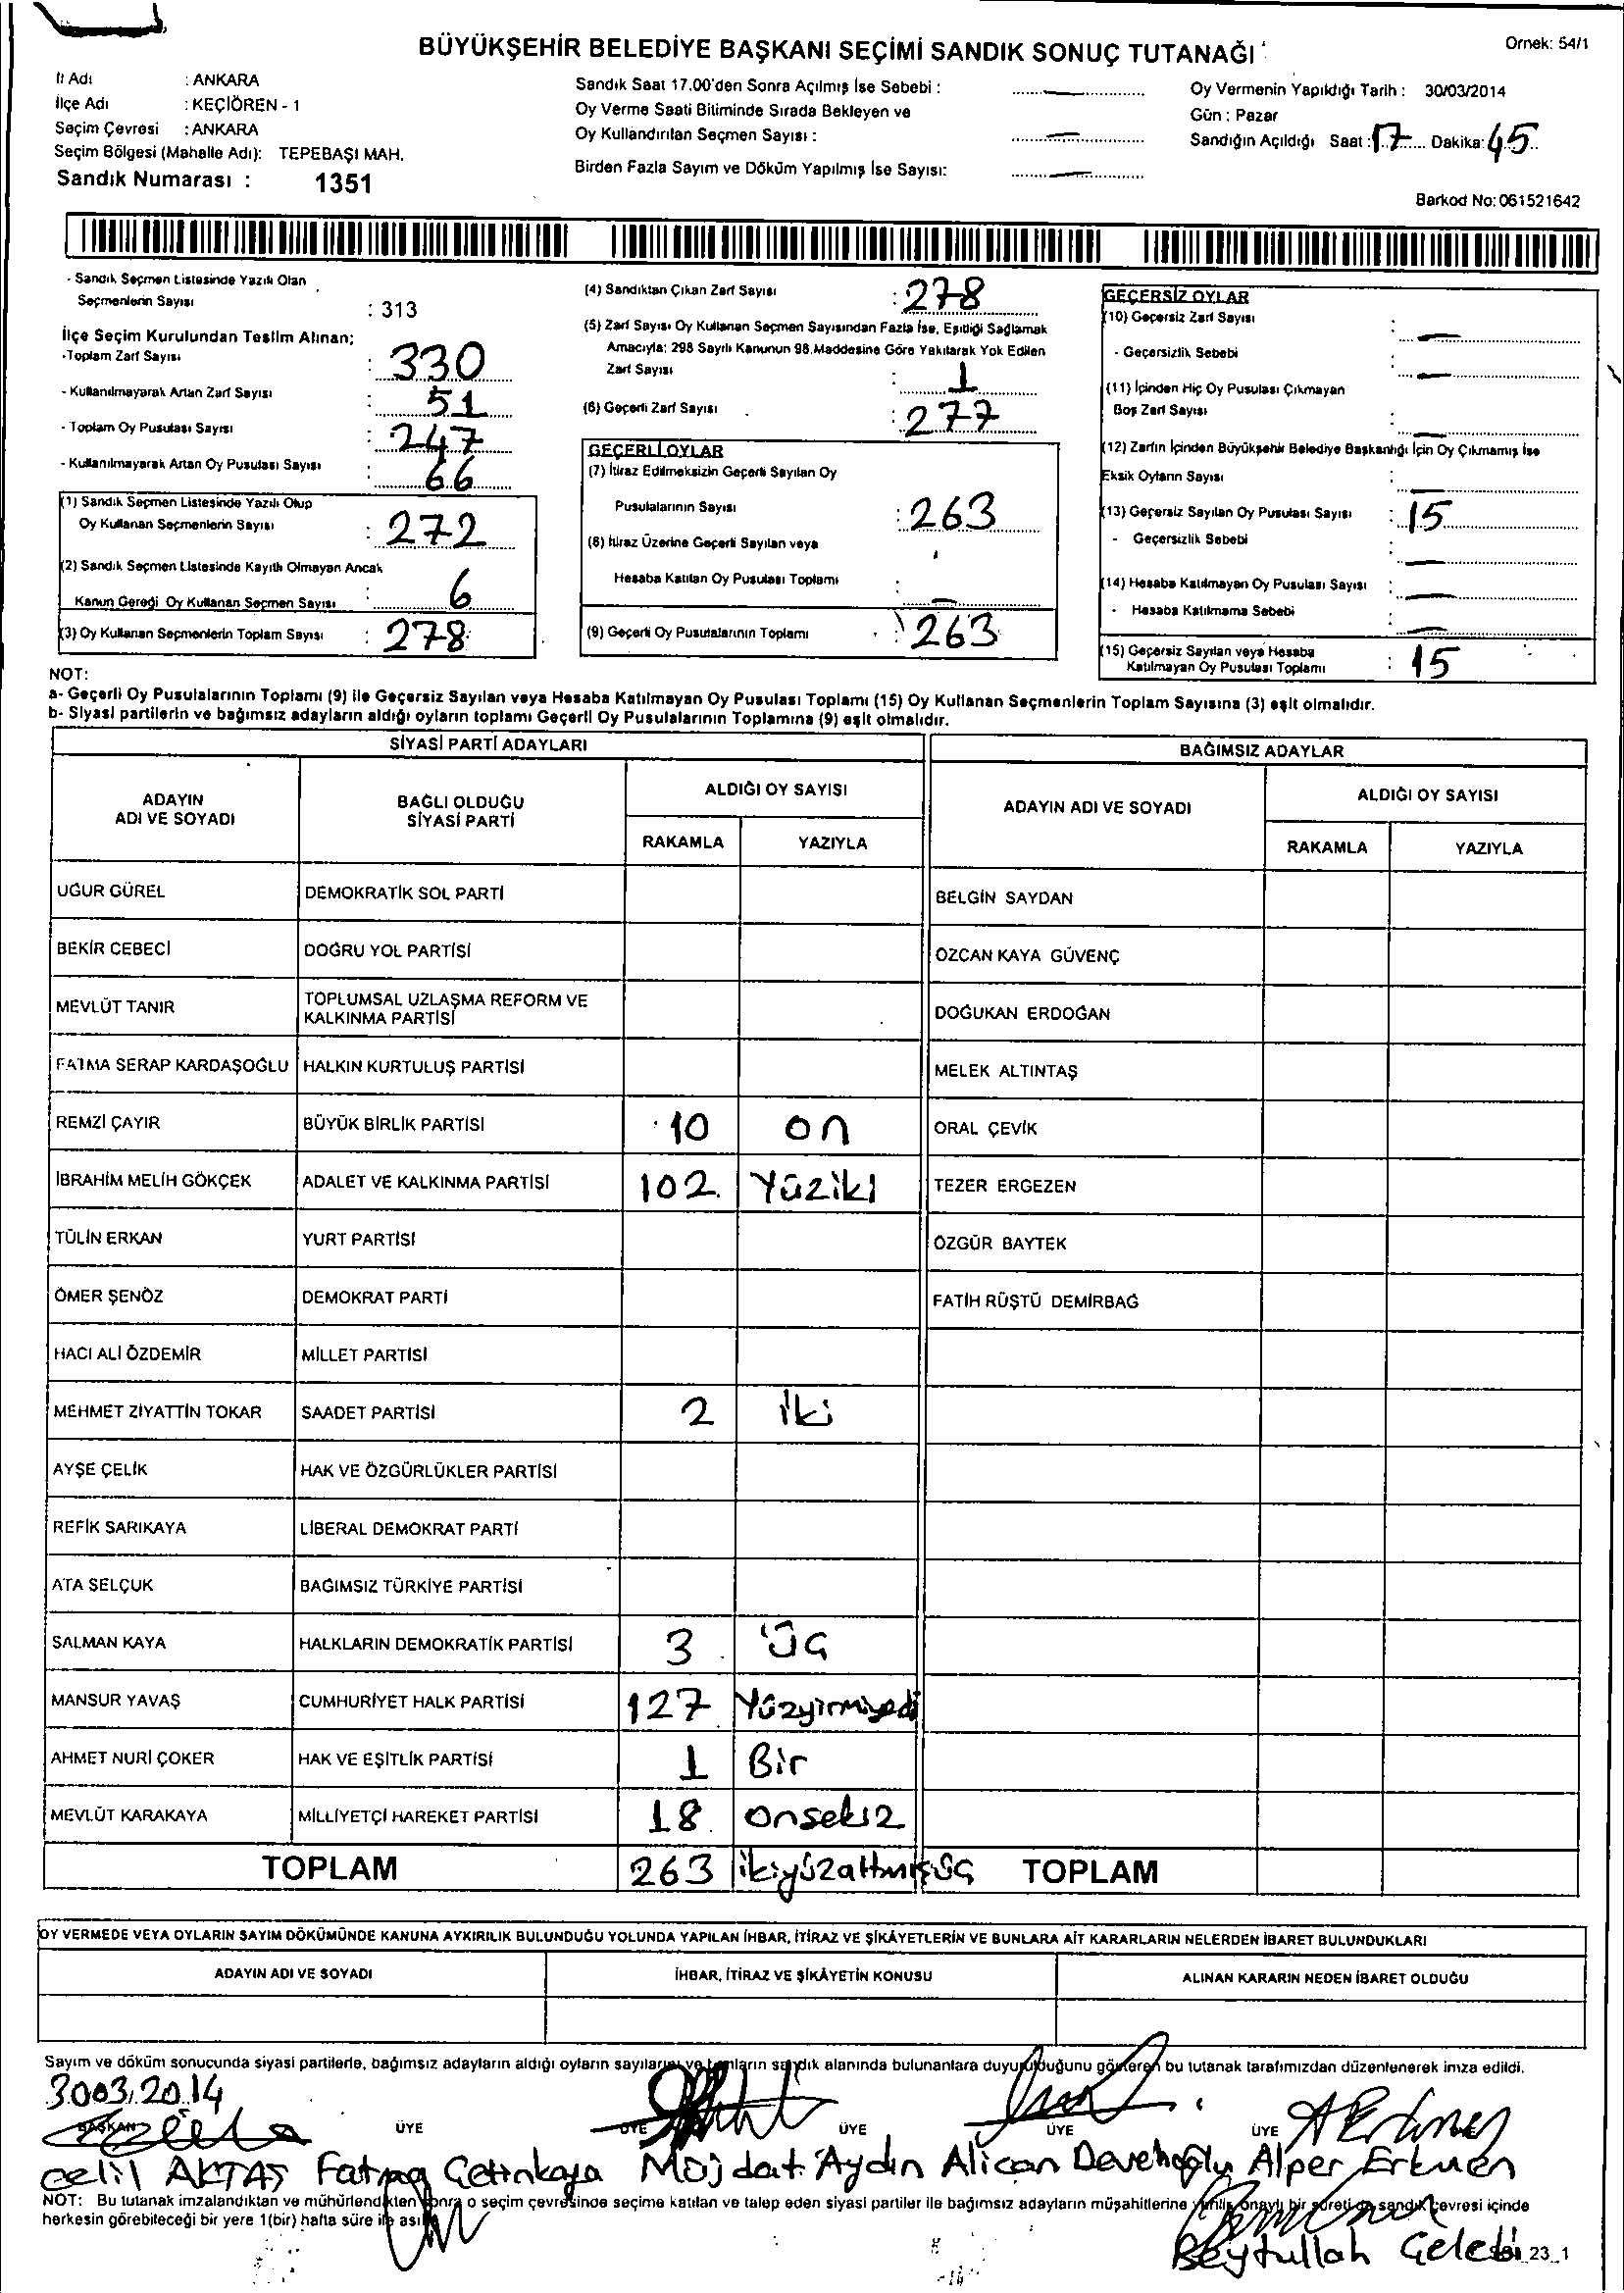 BÜYÜKŞEHİR BELEDİYE BAŞKANI SEÇİMİ SANDIK SONUÇ TUTANAĞI
Örnek: 54/1
İl Adı : ANKARA
İlçe Adı : KEÇİÖREN - 1
Seçim Çevresi : ANKARA
Seçim Bölgesi (Mahalle Adı): TEPEBAŞI MAH.
Sandık Numarası : 1351
Sandık Saat 17.00'den Sonra Açılmış İse Sebebi :
Oy Verme Saati Bitiminde Sırada Bekleyen ve
Oy Kullandırılan Seçmen Sayısı :
Birden Fazla Sayım ve Döküm Yapılmış İse Sayısı:
Oy Vermenin Yapıldığı Tarih : 30/03/2014
Gün : Pazar
Sandığın Açıldığı Saat : 17 Dakika: 45
Barkod No: 061521642
- Sandık Seçmen Listesinde Yazılı Olan
Seçmenlerin Sayısı : 313
İlçe Seçim Kurulundan Teslim Alınan;
-Toplam Zarf Sayısı : 330
- Kullanılmayarak Artan Zarf Sayısı : 51
- Toplam Oy Pusulası Sayısı : 247
- Kullanılmayarak Artan Oy Pusulası Sayısı : 66
(1) Sandık Seçmen Listesinde Yazılı Olup
Oy Kullanan Seçmenlerin Sayısı : 272
(2) Sandık Seçmen Listesinde Kayıtlı Olmayan Ancak
Kanun Gereği Oy Kullanan Seçmen Sayısı : 6
(3) Oy Kullanan Seçmenlerin Toplam Sayısı : 278
(4) Sandıktan Çıkan Zarf Sayısı : 278
(5) Zarf Sayısı Oy Kullanan Seçmen Sayısından Fazla İse, Eşitliği Sağlamak
Amacıyla; 298 Sayılı Kanunun 98.Maddesine Göre Yakılarak Yok Edilen
Zarf Sayısı : 1
(6) Geçerli Zarf Sayısı : 277
GEÇERLİ OYLAR
(7) İtiraz Edilmeksizin Geçerli Sayılan Oy
Pusulalarının Sayısı : 263
(8) İtiraz Üzerine Geçerli Sayılan veya
Hesaba Katılan Oy Pusulası Toplamı : –
(9) Geçerli Oy Pusulalarının Toplamı : 263
GEÇERSİZ OYLAR
(10) Geçersiz Zarf Sayısı : –
- Geçersizlik Sebebi : –
(11) İçinden Hiç Oy Pusulası Çıkmayan
Boş Zarf Sayısı : –
(12) Zarfın İçinden Büyükşehir Belediye Başkanlığı İçin Oy Çıkmamış İse
Eksik Oyların Sayısı : –
(13) Geçersiz Sayılan Oy Pusulası Sayısı : 15
- Geçersizlik Sebebi : –
(14) Hesaba Katılmayan Oy Pusulası Sayısı : –
- Hesaba Katılmama Sebebi : –
(15) Geçersiz Sayılan veya Hesaba
Katılmayan Oy Pusulası Toplamı : 15
NOT:
a- Geçerli Oy Pusulalarının Toplamı (9) ile Geçersiz Sayılan veya Hesaba Katılmayan Oy Pusulası Toplamı (15) Oy Kullanan Seçmenlerin Toplam Sayısına (3) eşit olmalıdır.
b- Siyasi partilerin ve bağımsız adayların aldığı oyların toplamı Geçerli Oy Pusulalarının Toplamına (9) eşit olmalıdır.
SİYASİ PARTİ ADAYLARI
BAĞIMSIZ ADAYLAR
ADAYIN ADI VE SOYADI
BAĞLI OLDUĞU SİYASİ PARTİ
ALDIĞI OY SAYISI
RAKAMLA YAZIYLA
ADAYIN ADI VE SOYADI
ALDIĞI OY SAYISI
RAKAMLA YAZIYLA
UĞUR GÜREL DEMOKRATİK SOL PARTİ BELGİN SAYDAN
BEKİR CEBECİ DOĞRU YOL PARTİSİ ÖZCAN KAYA GÜVENÇ
MEVLÜT TANIR TOPLUMSAL UZLAŞMA REFORM VE KALKINMA PARTİSİ DOĞUKAN ERDOĞAN
FATMA SERAP KARDAŞOĞLU HALKIN KURTULUŞ PARTİSİ MELEK ALTINTAŞ
REMZİ ÇAYIR BÜYÜK BİRLİK PARTİSİ 10 on ORAL ÇEVİK
İBRAHİM MELİH GÖKÇEK ADALET VE KALKINMA PARTİSİ 102 Yüziki TEZER ERGEZEN
TÜLİN ERKAN YURT PARTİSİ ÖZGÜR BAYTEK
ÖMER ŞENÖZ DEMOKRAT PARTİ FATİH RÜŞTÜ DEMİRBAĞ
HACI ALİ ÖZDEMİR MİLLET PARTİSİ
MEHMET ZİYATTİN TOKAR SAADET PARTİSİ 2 iki
AYŞE ÇELİK HAK VE ÖZGÜRLÜKLER PARTİSİ
REFİK SARIKAYA LİBERAL DEMOKRAT PARTİ
ATA SELÇUK BAĞIMSIZ TÜRKİYE PARTİSİ
SALMAN KAYA HALKLARIN DEMOKRATİK PARTİSİ 3 üç
MANSUR YAVAŞ CUMHURİYET HALK PARTİSİ 127 Yüzyirmiyedi
AHMET NURİ ÇOKER HAK VE EŞİTLİK PARTİSİ 1 Bir
MEVLÜT KARAKAYA MİLLİYETÇİ HAREKET PARTİSİ 18 onsekiz
TOPLAM 263 ikiyüzaltmışüç TOPLAM
OY VERMEDE VEYA OYLARIN SAYIM DÖKÜMÜNDE KANUNA AYKIRILIK BULUNDUĞU YOLUNDA YAPILAN İHBAR, İTİRAZ VE ŞİKÂYETLERİN VE BUNLARA AİT KARARLARIN NELERDEN İBARET BULUNDUKLARI
ADAYIN ADI VE SOYADI İHBAR, İTİRAZ VE ŞİKÂYETİN KONUSU ALINAN KARARIN NEDEN İBARET OLDUĞU
Sayım ve döküm sonucunda siyasi partilerle, bağımsız adayların aldığı oyların sayılarını ve bunların sandık alanında bulunanlara duyurulduğunu gösteren bu tutanak tarafımızdan düzenlenerek imza edildi.
30.03.2014
BAŞKAN ÜYE ÜYE ÜYE ÜYE ÜYE
Celil AKTAŞ Fatma Çetinkaya Müjdat Aydın Alican Develioğlu Alper Erkmen
NOT: Bu tutanak imzalandıktan ve mühürlendikten sonra o seçim çevresinde seçime katılan ve talep eden siyasi partiler ile bağımsız adayların müşahitlerine verilir, onaylı bir sureti de sandık çevresi içinde
herkesin görebileceği bir yere 1(bir) hafta süre ile asılır.
Beytullah Çelebi 23_1